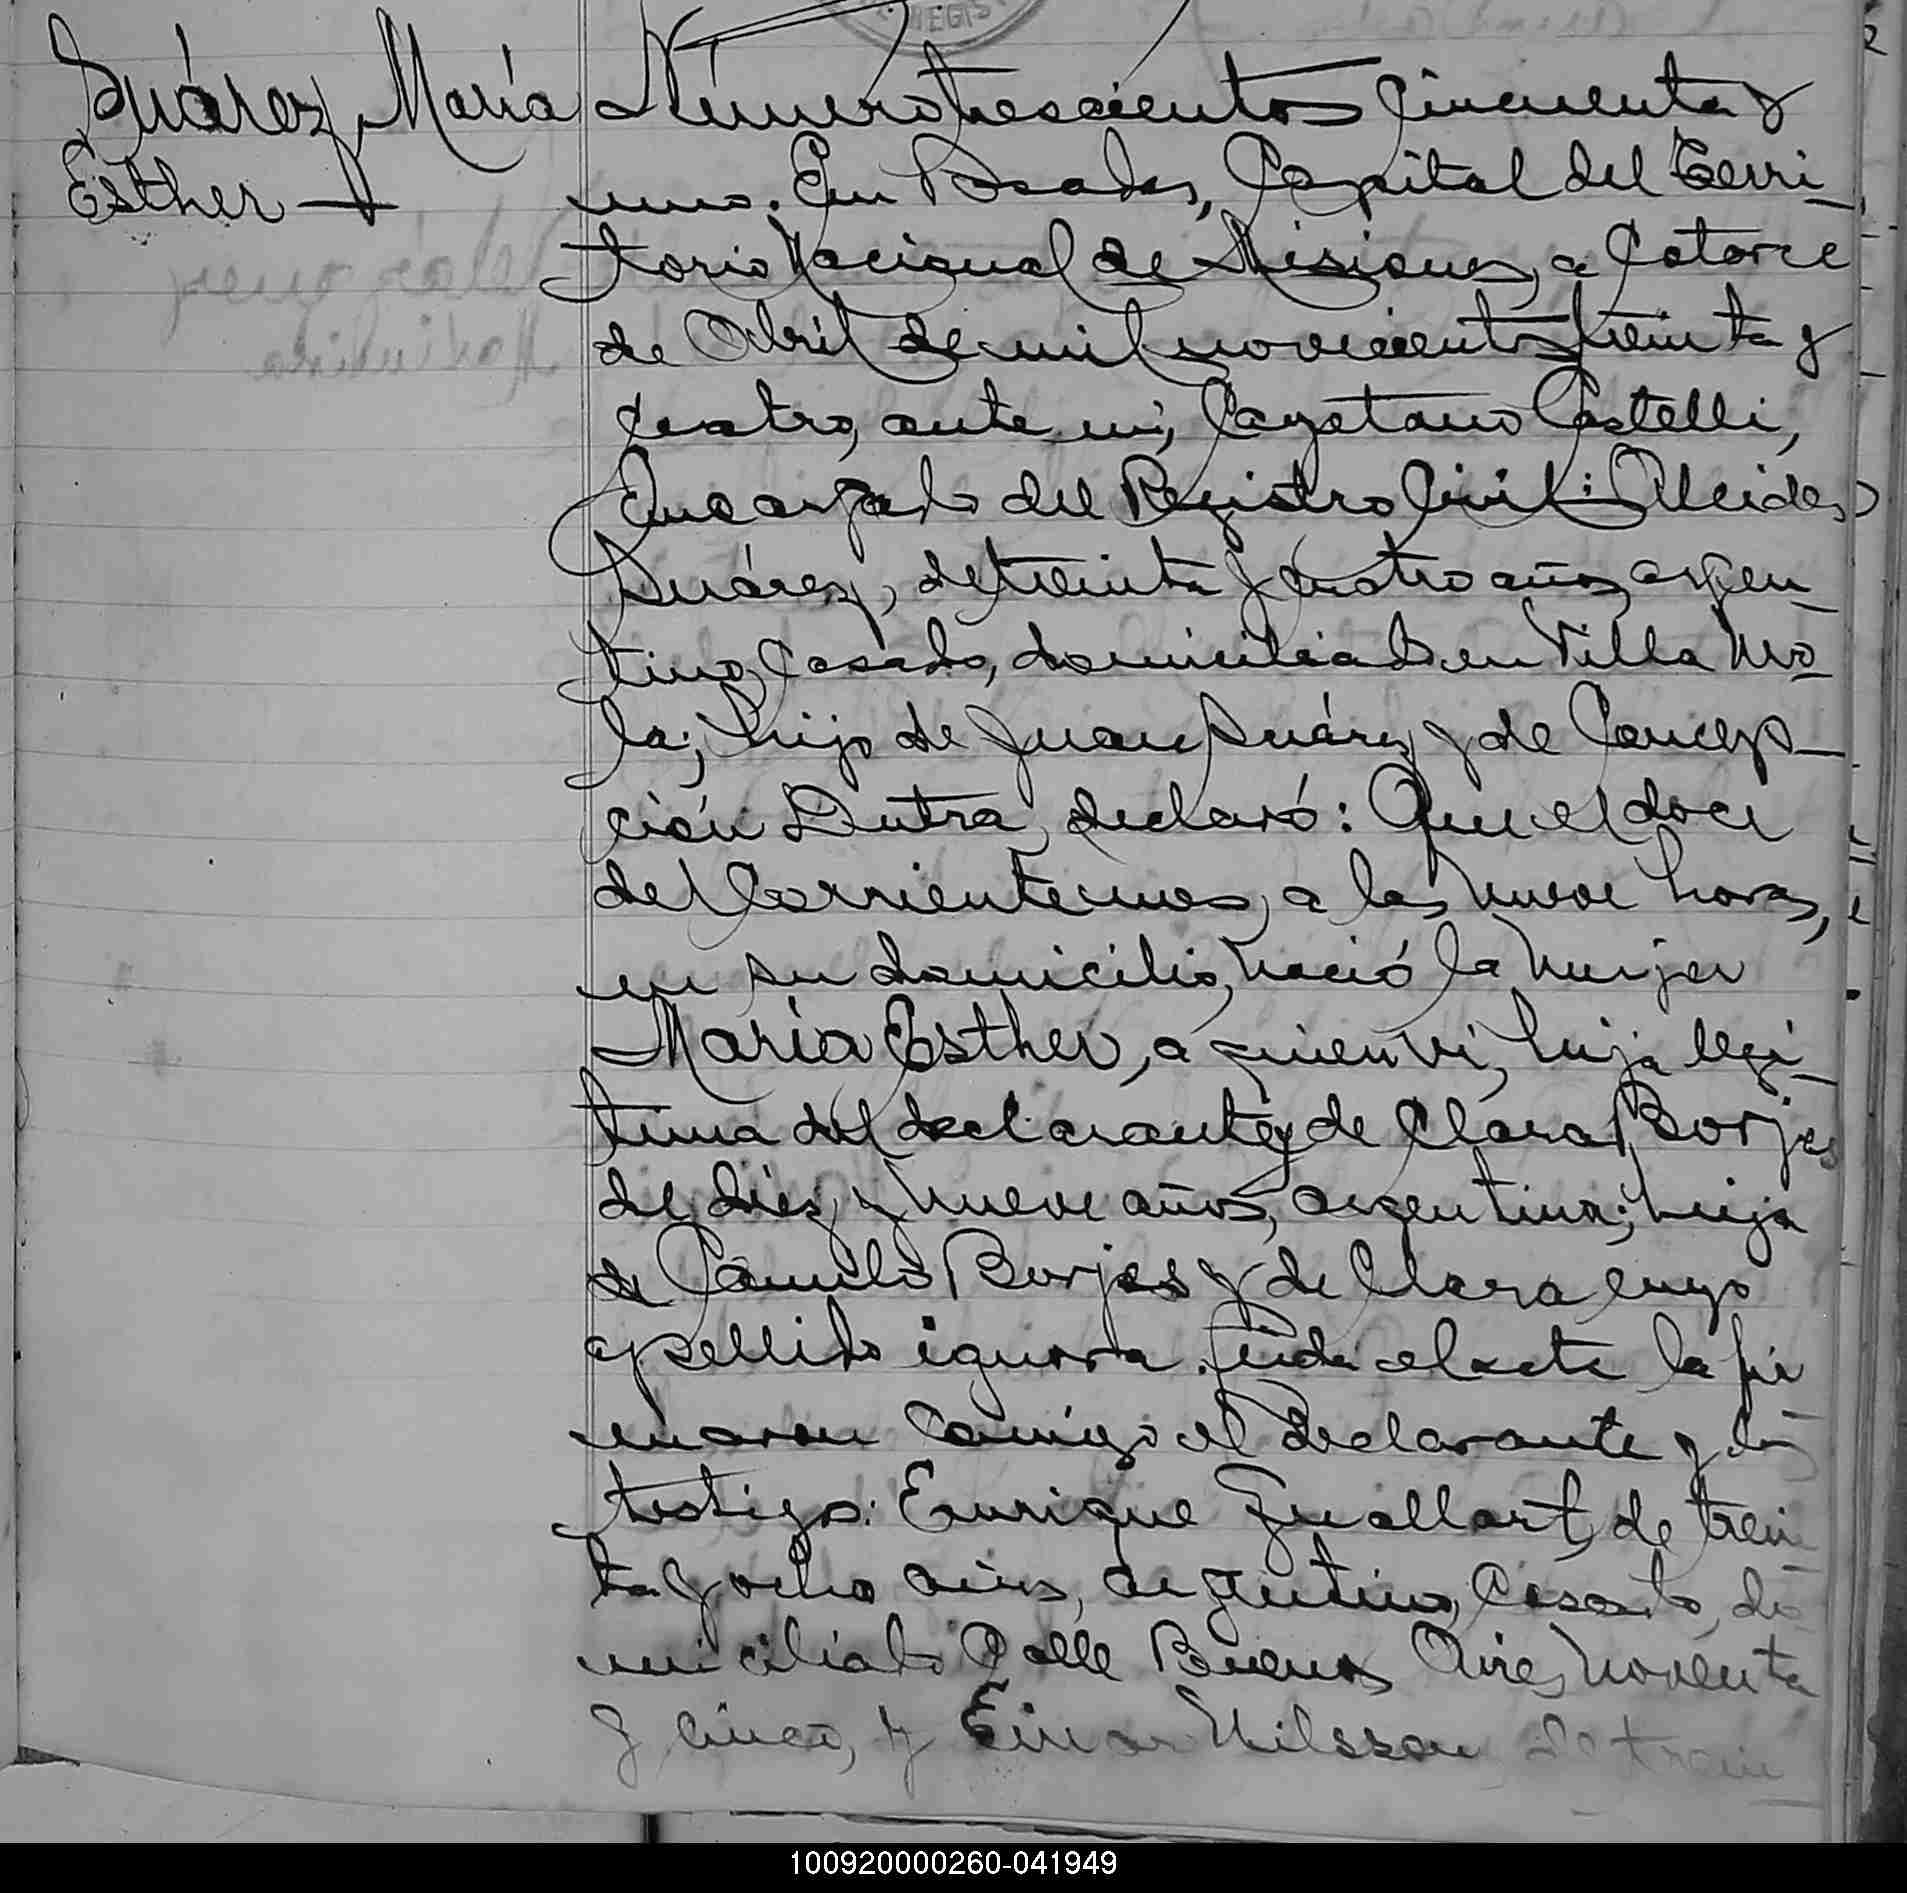 Suárez, María
Esther
Número trescientos cincuenta y
uno. En Posadas, Capital del Terri-
torio Nacional de Misiones, a Catorce
de Abril de mil novecientos treinta y
cuatro, ante mi, Cayetano Castelli,
Encargado del Registro Civil: Alcides
Suárez, de treinta y cuatro años, argen-
tino, Casado, domiciliado en Villa Mo-
la; hijo de Juan Suárez y de Concep-
ción Dutra, declaró: Que el doce
del Corriente mes, a las nueve horas,
en su domicilio, nació la mujer
María Esther, a quien vi, hija legi-
tima del declarante y de Clara Borjes
de diez y nueve años, argentina; hija
de Camilo Borjes y de Clara cuyo
apellido ignora. Leida el acta la fir-
maron Conmigo el declarante y los
testigos: Enrique Guallart, de trein-
ta y ocho años, argentino, Casado, do-
miciliado Calle Buenos Aires noventa
y cinco, y Einar Nilsson de trein-
100920000260-041949